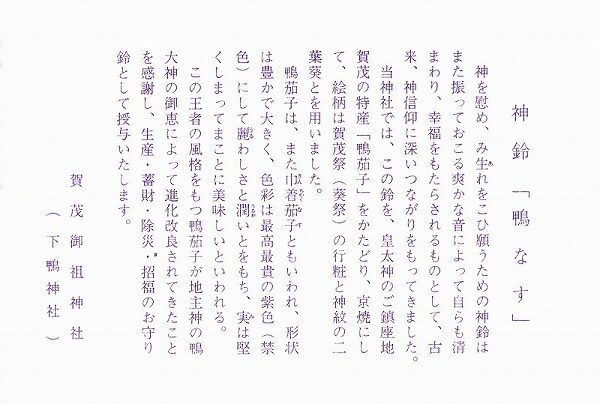 神鈴「鴨なす」
神を慰め、み生れをこひ願うための神鈴は
また振っておこる爽かな音によって自らも清
まわり、幸福をもたらされるものとして、古
来、神信仰に深いつながりをもってきました。
当神社では、この鈴を、皇太神のご鎮座地
賀茂の特産「鴨茄子」をかたどり、京焼にし
て、絵柄は賀茂祭（葵祭）の行粧と神紋の二
葉葵とを用いました。
鴨茄子は、また巾着茄子ともいわれ、形状
は豊かで大きく、色彩は最高最貴の紫色（禁
色）にして麗わしさと潤いとをもち、実は堅
くしまってまことに美味しいといわれる。
この王者の風格をもつ鴨茄子が地主神の鴨
大神の御恵によって進化改良されてきたこと
を感謝し、生産・蓄財・除災・招福のお守り
鈴として授与いたします。
賀茂御祖神社
（下鴨神社）